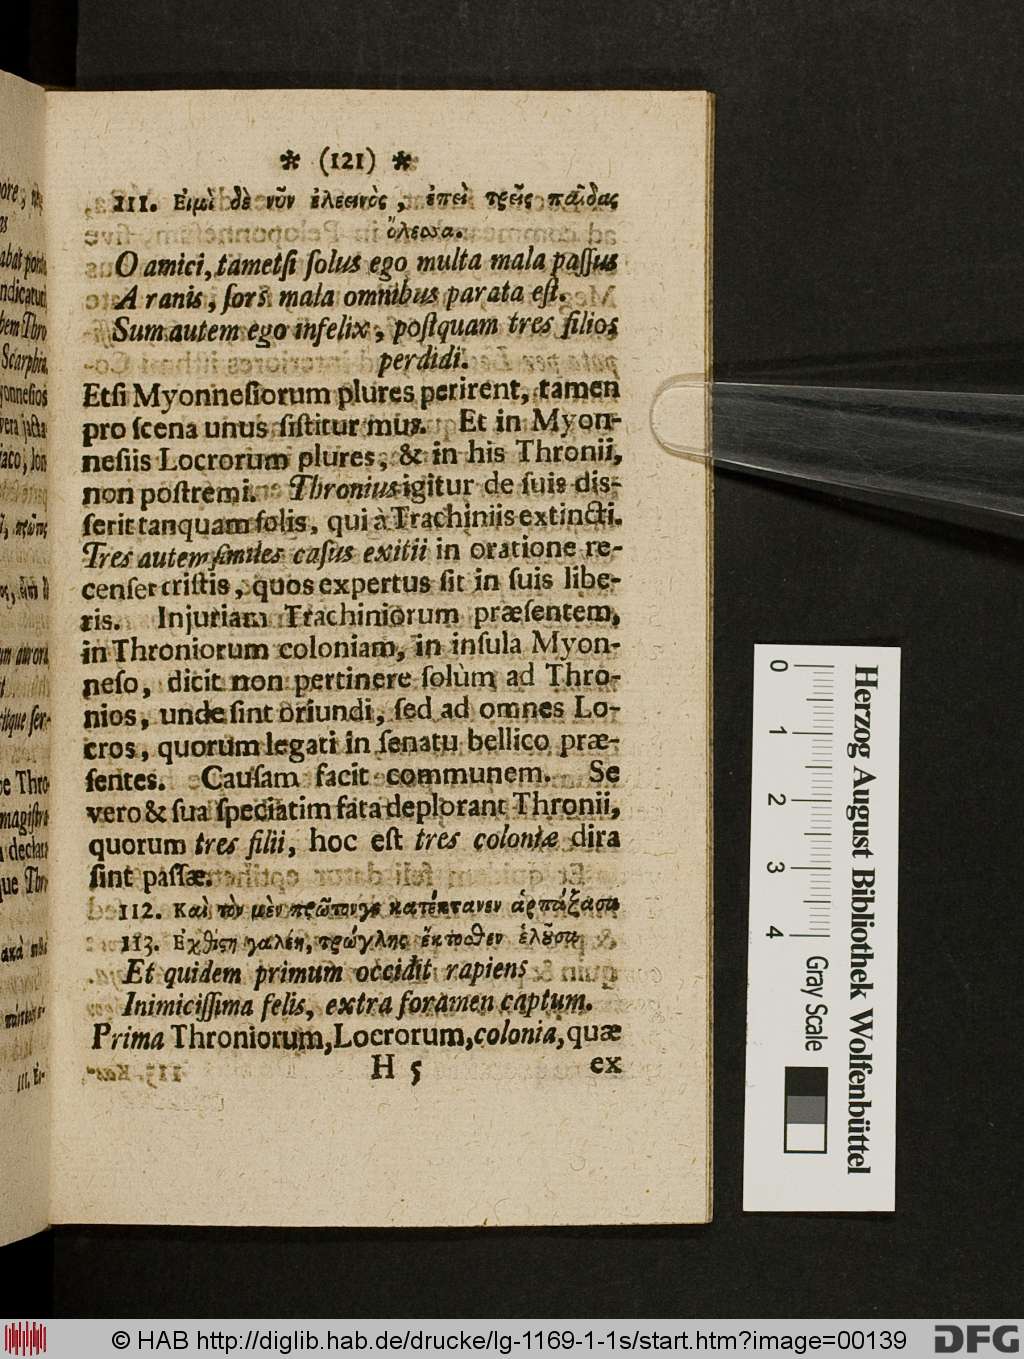 * (121) *
111. Εἰμὶ δὲ νῦν ἐλεεινὸς, ἐπεὶ τρεῖς παῖδας
ὄλεσσα.
O amici, tametſi ſolus ego multa mala paſſus
A ranis, ſors mala omnibus parata eſt.
Sum autem ego infelix, poſtquam tres filios
perdidi.
Etſi Myonneſiorum plures perirent, tamen
pro ſcena unus ſiſtitur mus. Et in Myon-
neſiis Locrorum plures, & in his Thronii,
non poſtremi. Thronius igitur de ſuis diſ-
ſerit tanquam ſolis, qui à Trachiniis extincti.
Tres autem ſimiles caſus exitii in oratione re-
cenſet triſtis, quos expertus ſit in ſuis libe-
ris. Injuriam Trachiniorum præſentem,
in Throniorum coloniam, in inſula Myon-
neſo, dicit non pertinere ſolùm ad Thro-
nios, unde ſint oriundi, ſed ad omnes Lo-
cros, quorum legati in ſenatu bellico præ-
ſentes. Cauſam facit communem. Se
vero & ſua ſpeciatim fata deplorant Thronii,
quorum tres filii, hoc eſt tres coloniæ dira
ſint paſſæ.
112. Καὶ τὸν μὲν πρῶτόνγε κατέκτανεν ἁρπάξασα
113. Εχθίςη γαλέη, τρώγλης ἔκτοσθεν ἑλοῦσα
Et quidem primum occidit rapiens
Inimiciſſima felis, extra foramen captum.
Prima Throniorum, Locrorum, colonia, quæ
H 5 ex
Herzog August Bibliothek Wolfenbüttel
Gray Scale
0 1 2 3 4
© HAB http://diglib.hab.de/drucke/lg-1169-1-1s/start.htm?image=00139
DFG